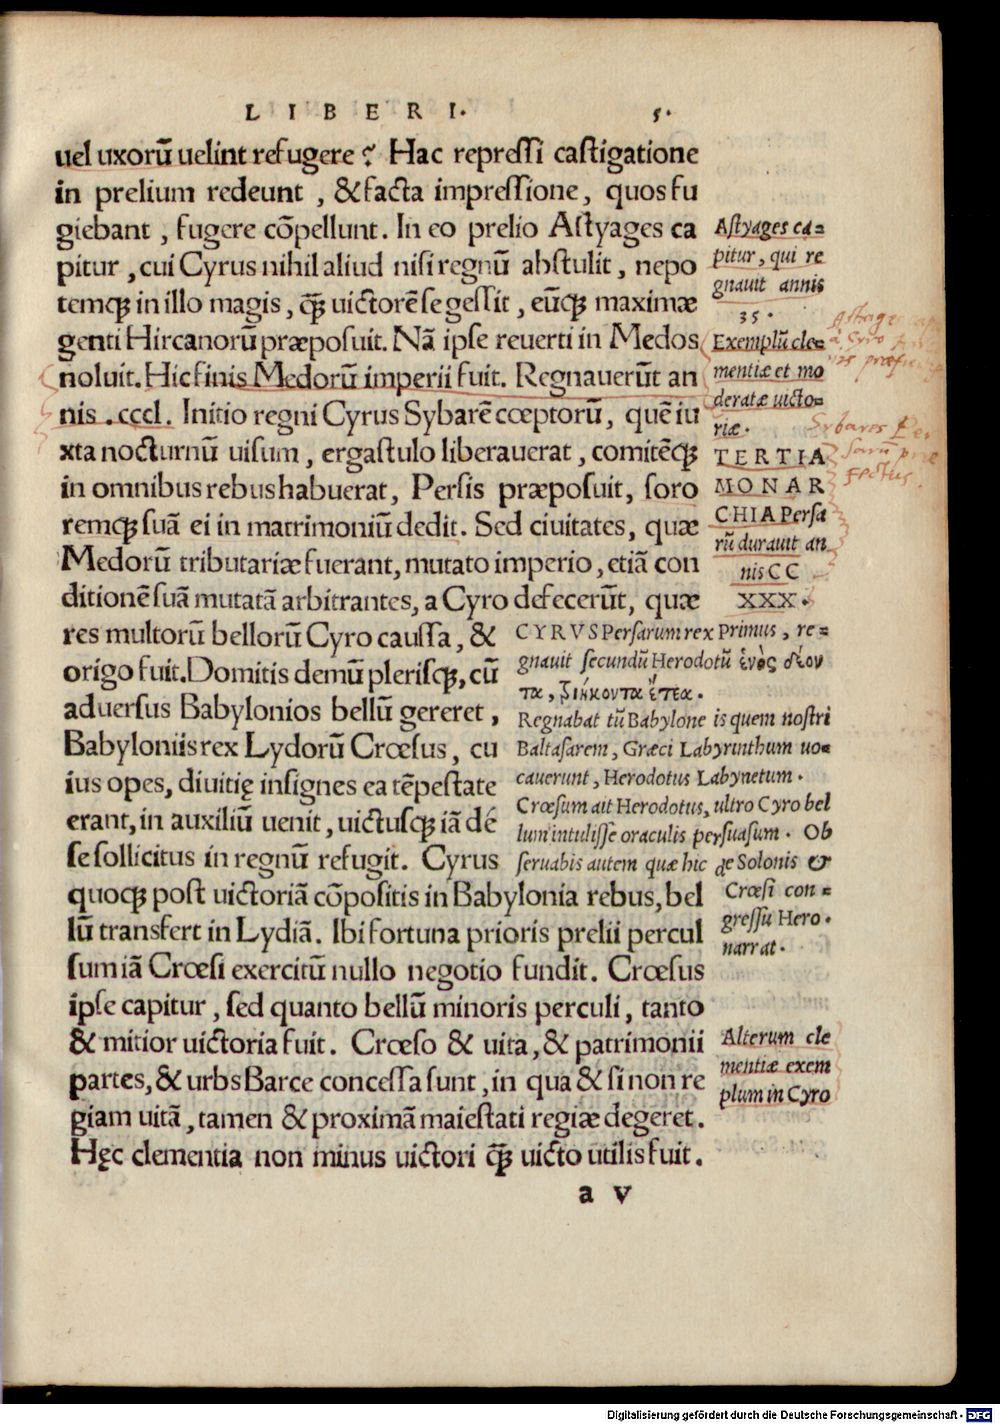 LIBER I. 5.
uel uxorū uelint refugere? Hac repressi castigatione
in prelium redeunt, & facta impressione, quos fu
giebant, fugere cōpellunt. In eo prelio Astyages ca
pitur, cui Cyrus nihil aliud nisi regnū abstulit, nepo
temqꝫ in illo magis, q̄ꝫ uictorē se gessit, eūqꝫ maximæ
genti Hircanorū præposuit. Nā ipse reuerti in Medos
noluit. Hic finis Medorū imperii fuit. Regnauerūt an
nis .cccl. Initio regni Cyrus Sybarē cœptorū, quē iu
xta nocturnū uisum, ergastulo liberauerat, comitēqꝫ
in omnibus rebus habuerat, Persis præposuit, soro
remqꝫ suā ei in matrimoniū dedit. Sed ciuitates, quæ
Medorū tributariæ fuerant, mutato imperio, etiā con
ditionē suā mutatā arbitrantes, a Cyro defecerūt, quæ
res multorū bellorū Cyro caussa, &
origo fuit. Domitis demū plerisqꝫ, cū
aduersus Babylonios bellū gereret,
Babyloniis rex Lydorū Crœsus, cu
ius opes, diuitię insignes ea tēpestate
erant, in auxiliū uenit, uictusqꝫ iā dé
se sollicitus in regnū refugit. Cyrus
quoqꝫ post uictoriā cōpositis in Babylonia rebus, bel
lū transfert in Lydiā. Ibi fortuna prioris prelii percul
sum iā Crœsi exercitū nullo negotio fundit. Crœsus
ipse capitur, sed quanto bellū minoris perculi, tanto
& mitior uictoria fuit. Crœso & uita, & patrimonii
partes, & urbs Barce concessa sunt, in qua & si non re
giam uitā, tamen & proximā maiestati regiæ degeret.
Hęc clementia non minus uictori q̄ꝫ uicto utilis fuit.
a v
Astyages ca=
pitur, qui re
gnauit annis
35.
Exemplū cle=
mentiæ et mo
deratæ uicto=
riæ.
TERTIA
MONAR
CHIA Persa
rū durauit an
nis CC
XXX.
CYRVS Persarum rex Primus, re=
gnauit secundū Herodotū ἑνὸς δέον
τα, τριήκοντα ἔτεα.
Regnabat tū Babylone is quem nostri
Baltasarem, Græci Labyrinthum uo=
cauerunt, Herodotus Labynetum.
Crœsum ait Herodotus, ultro Cyro bel
lum intulisse oraculis persuasum. Ob
seruabis autem quæ hic de Solonis &
Crœsi con=
gressu Hero.
narrat.
Alterum cle
mentiæ exem
plum in Cyro
Sybares Per
sarū præ
fectus.
Digitalisierung gefördert durch die Deutsche Forschungsgemeinschaft - DFG